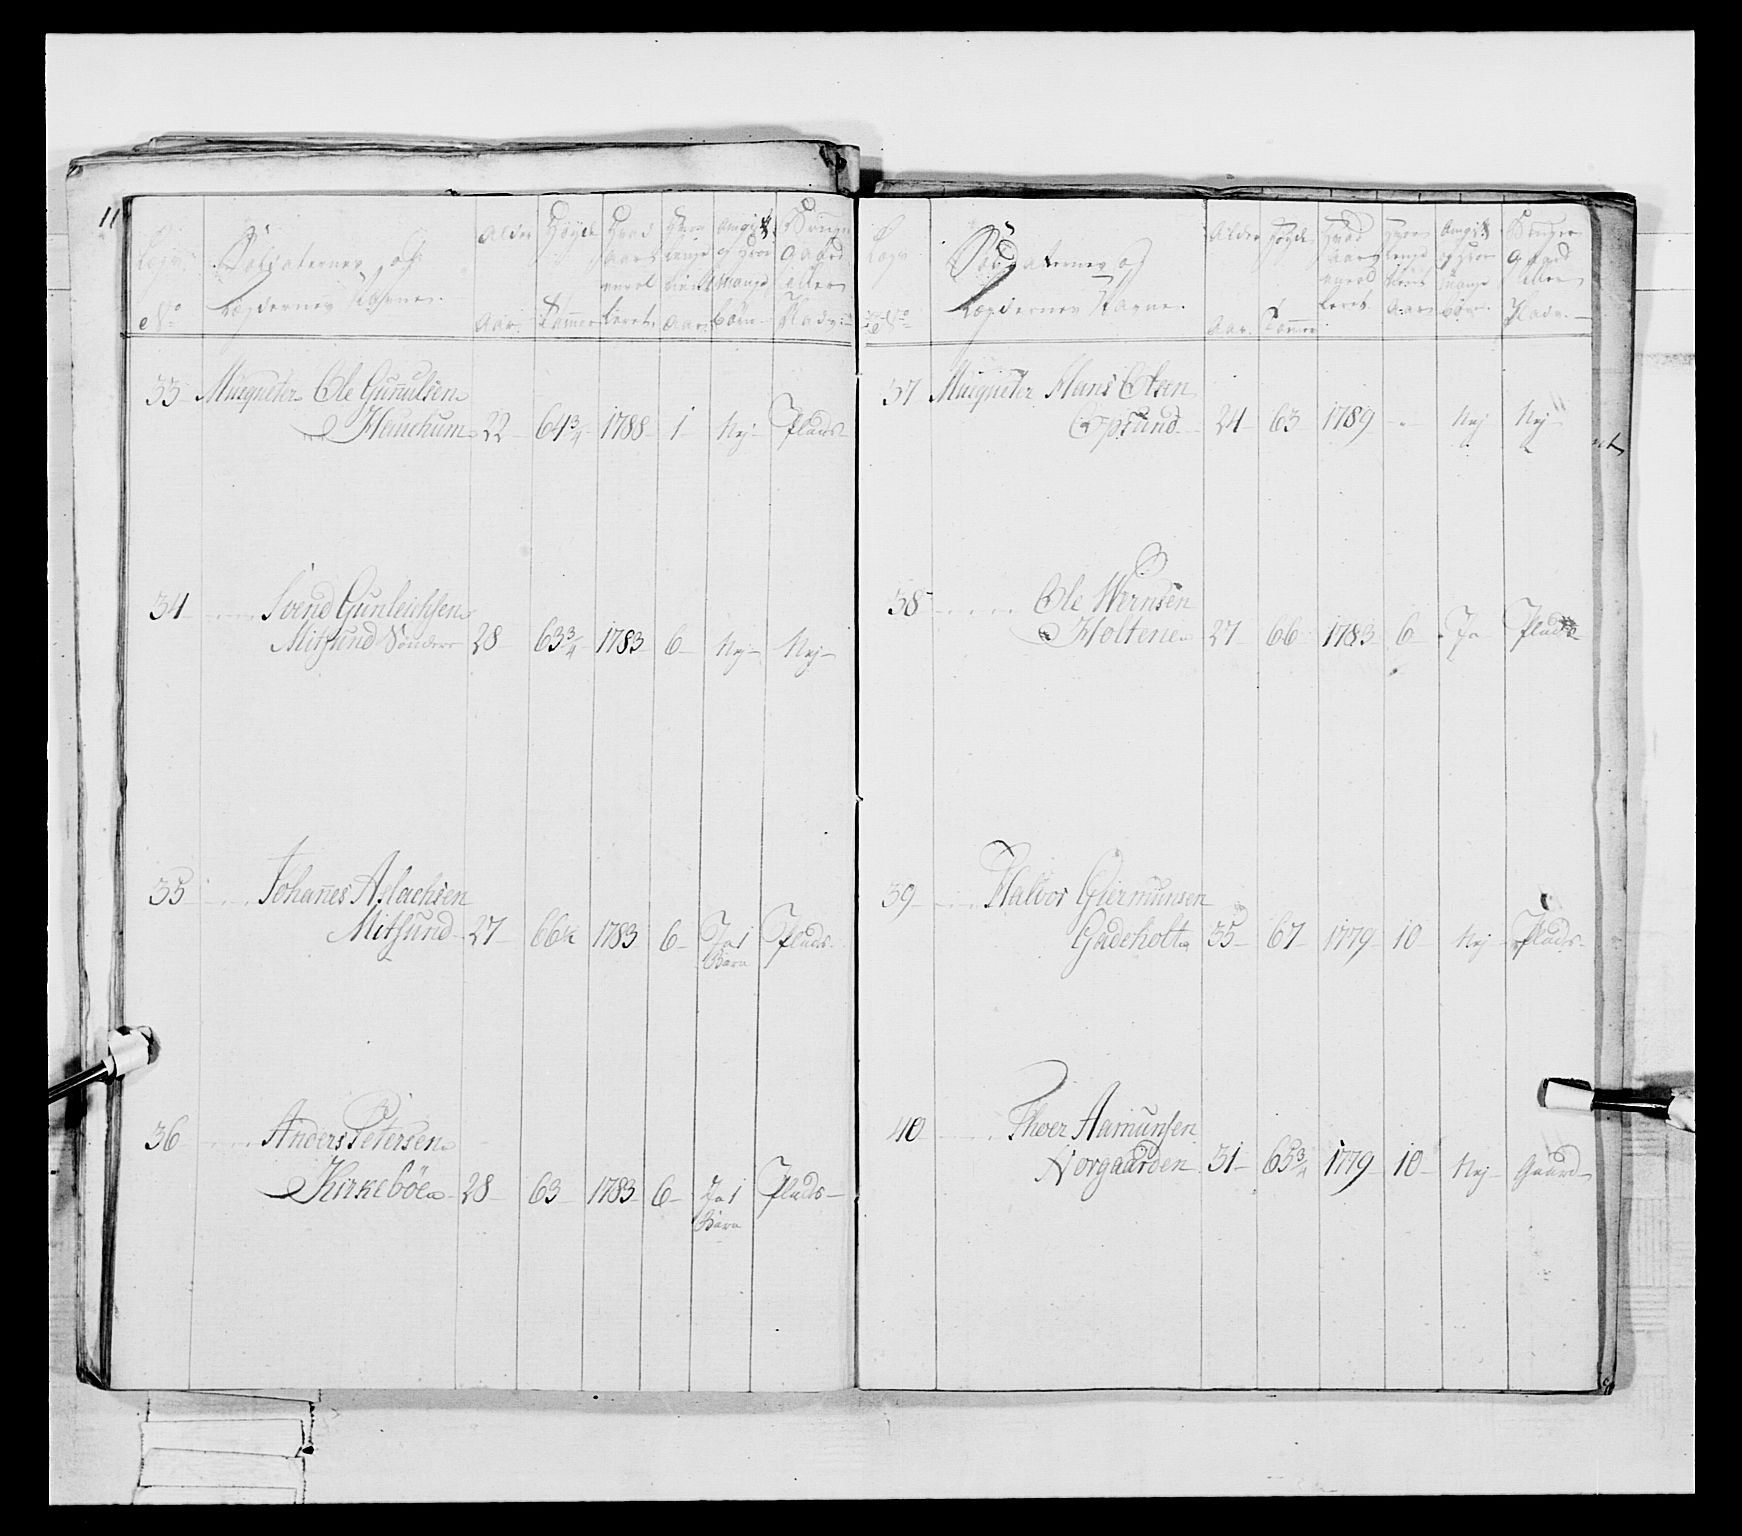 11
Lægs No
Soldaternes og
Lægdernes Nafne.
Alder
Aar.
Høyde
Tommer
Hvad
Aar
enrol
leret.
Hvor
længe
tient
Aar
Om gift
og hvor
mange
Børn
Bruger
Gaard
eller
Plads
33 Musqueter Ole Gunnulsen
Hauchum 22 64 3/4 1788 1 Nej Plads
34 Svend Gunleichsen
Mitsund Søndere 28 63 3/4 1783 6 Nej Nej
35 Johanes Aslachsen
Mitsund 27 66 1/2 1783 6 Ja 1 Plads
Barn
36 Anders Petersen
Kirkebøe 28 63 1783 6 Ja 1 Plads
Barn
Lægs No
Soldaternes og
Lægdernes Nafne.
Alder
Aar.
Høyde
Tommer
Hvad
Aar
enrol
leret
Hvor
længe
tient
Aar
Om gift
og hvor
mange
Børn
Bruger
Gaard
eller
Plads
37 Musqueter Hans Olsen
Opsund 24 63 1789 - Nej Nej
38 Ole Wernsen
Holtene 27 66 1783 6 Ja Plads
39 Halvor Giermunsen
Gadeholt 35 67 1779 10 Nej Plads
40 Thoer Aamunsen
Norgaarden 31 65 3/4 1779 10 Nej Gaard